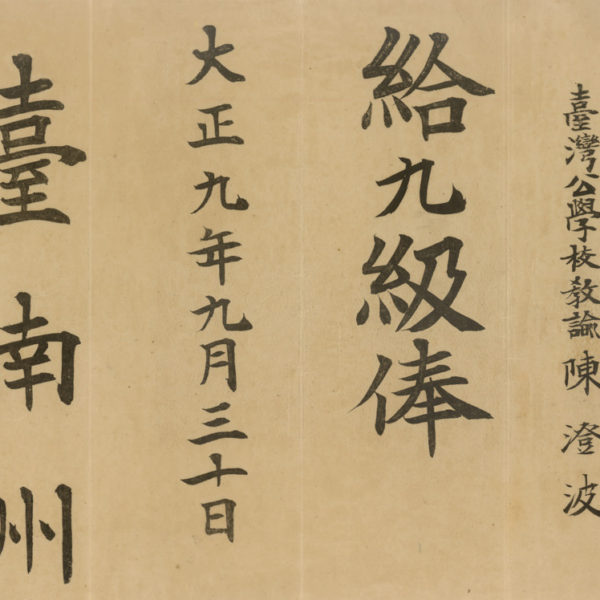 臺灣公學校教諭陳澄波
給九級俸
大正九年九月三十日
臺南州